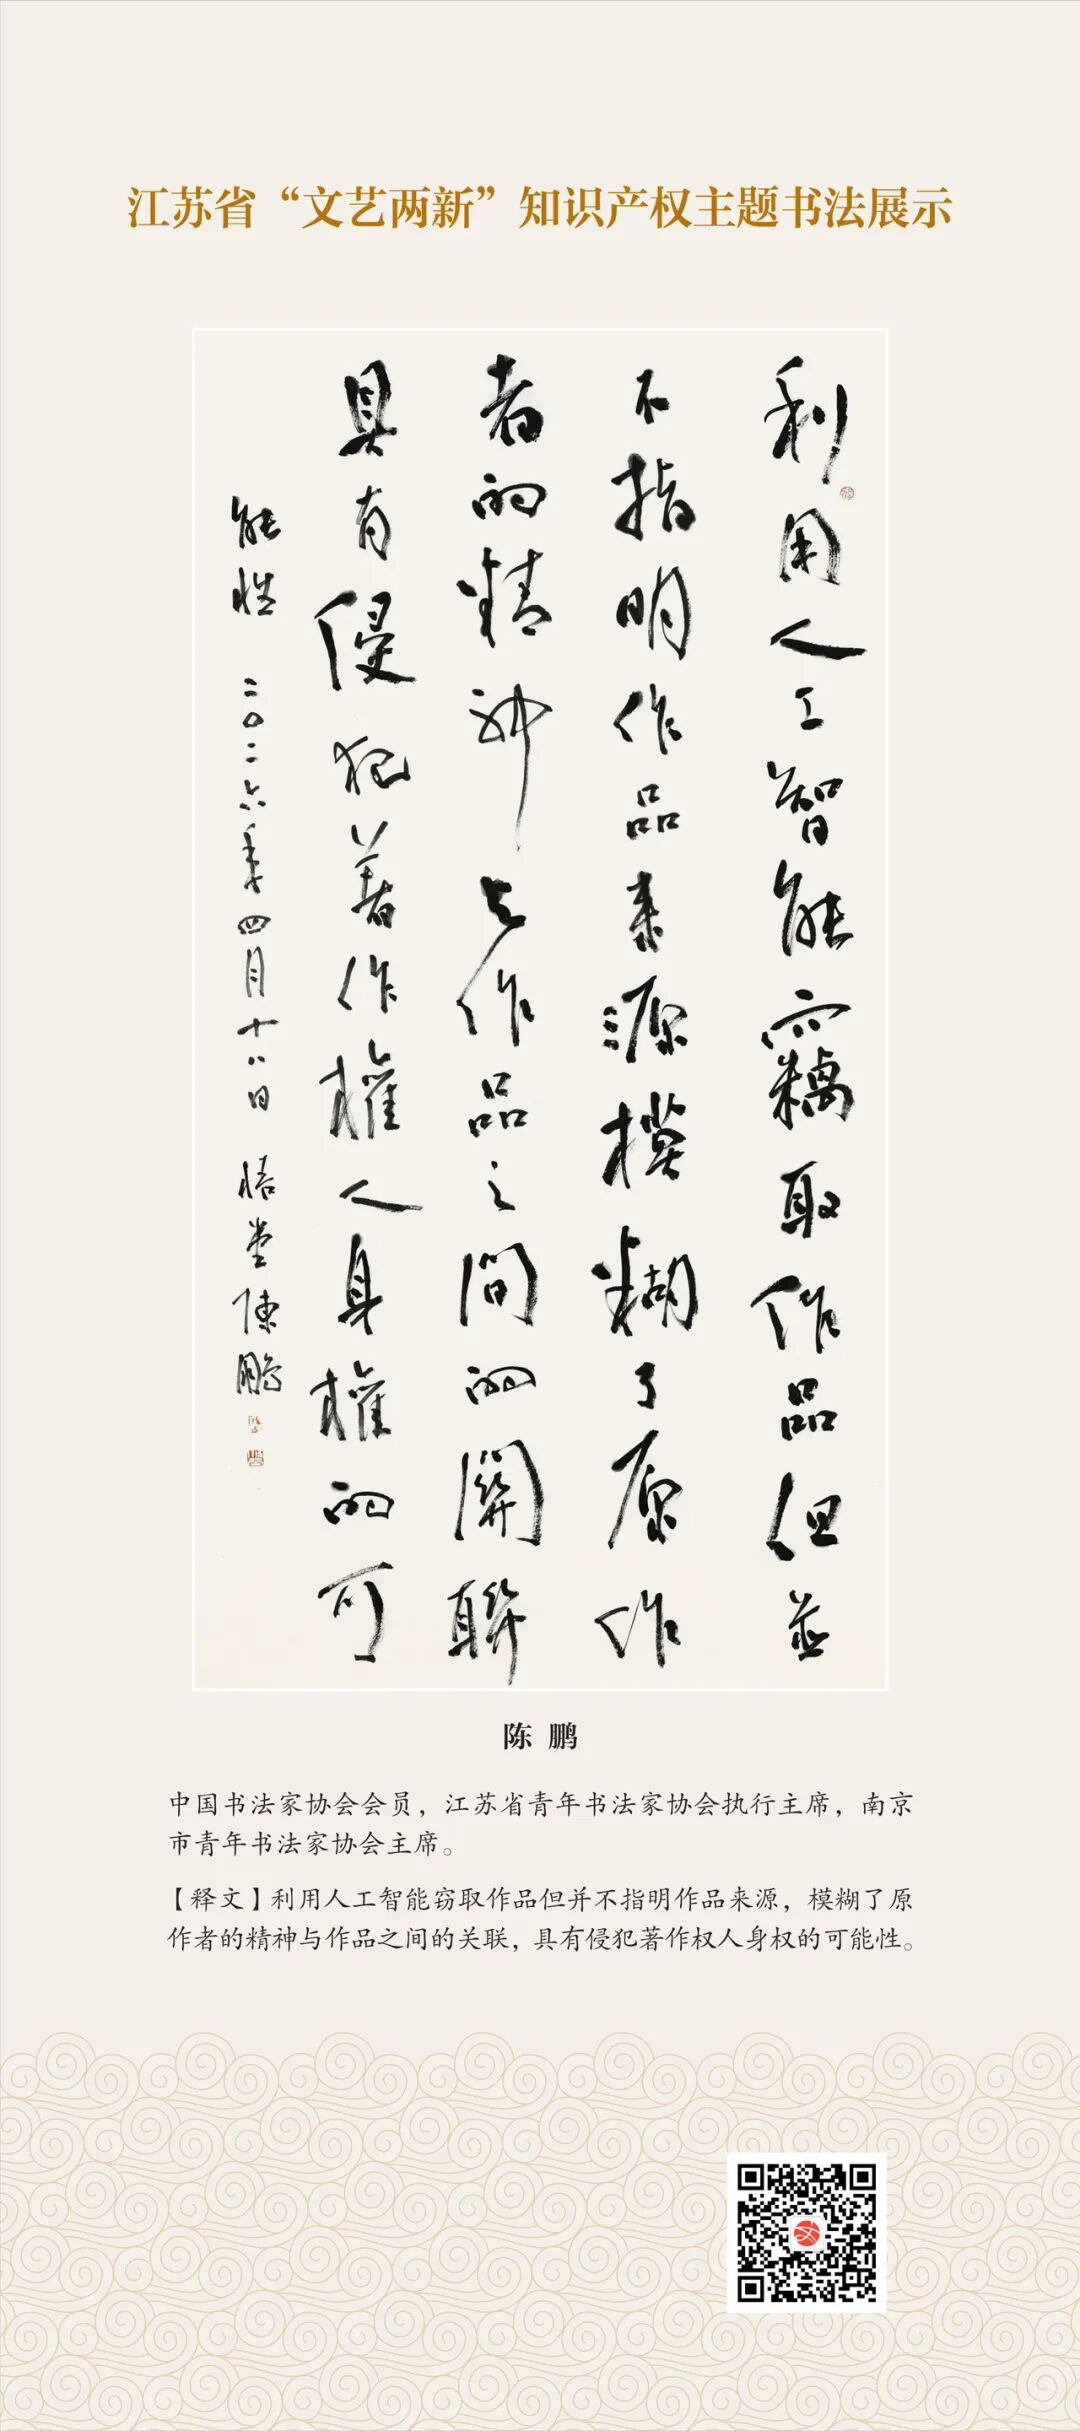 江苏省“文艺两新”知识产权主题书法展示
利用人工智能竊取作品但並
不指明作品来源模糊了原作
者的精神与作品之间的関聯
具有侵犯著作權人身權的可
能性 二〇二六年四月十八日 悟堂陳鵬
陈 鹏
中国书法家协会会员，江苏省青年书法家协会执行主席，南京
市青年书法家协会主席。
【释文】利用人工智能窃取作品但并不指明作品来源，模糊了原
作者的精神与作品之间的关联，具有侵犯著作权人身权的可能性。